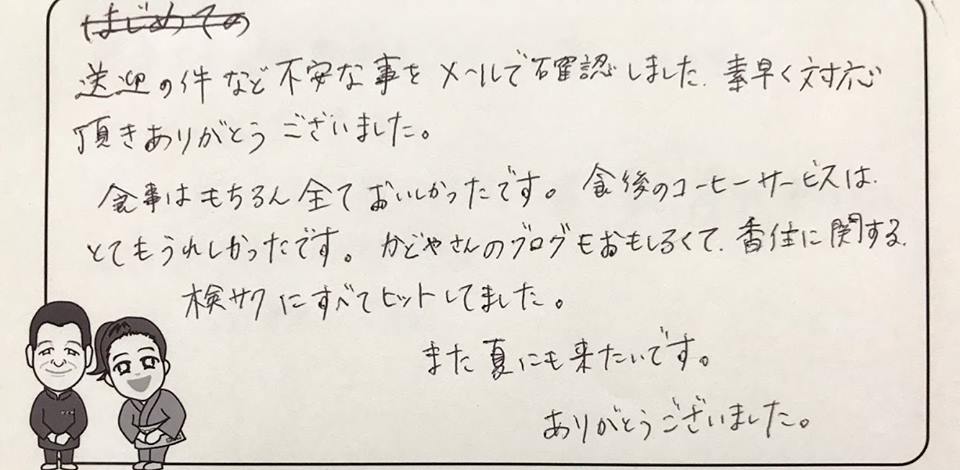 はじめての
送迎の件など不安な事をメールで確認しました、素早く対応
頂きありがとうございました。
食事はもちろん全ておいしかったです。食後のコーヒーサービスは、
とてもうれしかったです。かどやさんのブログもおもしろくて、香住に関する、
検サクにすべてヒットしてました。
また夏にも来たいです。
ありがとうございました。